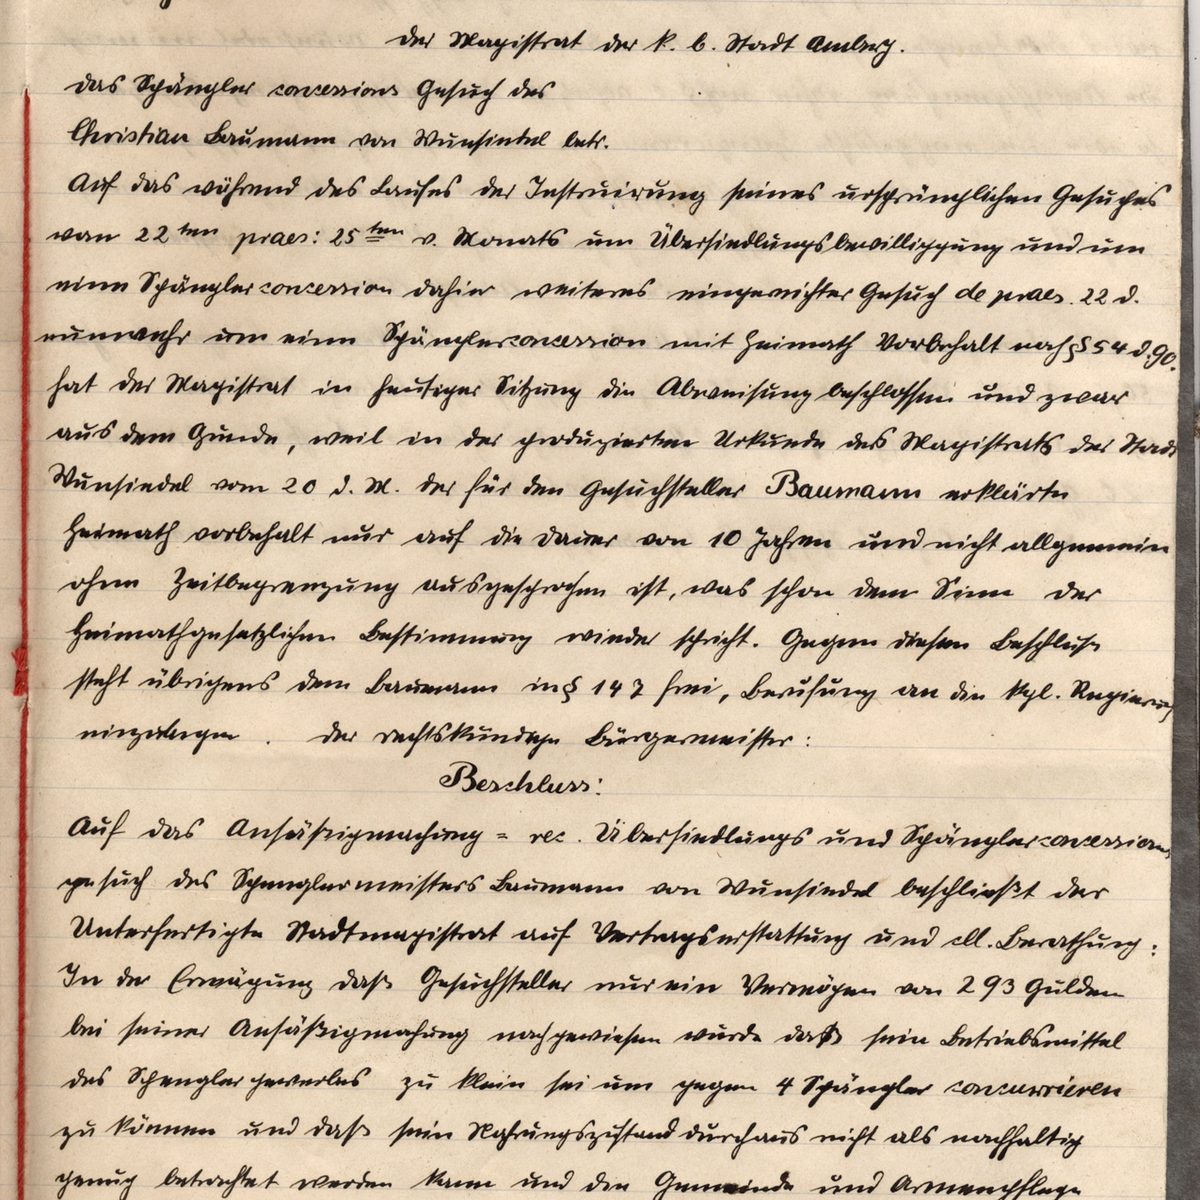 Der Magistrat der k. b. Stadt Amberg.
Das Spängler concessions Gesuch des
Christian Baumann von Wunsiedel betr.
Auf das während des Laufes der Instruirung seines ursprünglichen Gesuches
vom 22ten praes: 25ten v. Monats um Übersiedlungsbewilligung und um
eine Spänglerconcession dahier weiteres eingereichter Gesuch de praes. 22 d.
nunmehr um eine Spänglerconcession mit Heimath Vorbehalt nach § 54 d. GO.
hat der Magistrat in heutiger Sitzung die Abweisung beschlossen und zwar
aus dem Grunde, weil in der produzierten Urkunde des Magistrats der Stadt
Wunsiedel vom 20 d. M. der für den Gesuchsteller Baumann erklärte
Heimath vorbehalt nur auf die Dauer von 10 Jahren und nicht allgemein
ohne Zeitbegrenzung ausgesprochen ist, was schon dem Sinne der
Heimathgesetzlichen Bestimmung wieder spricht. Gegen diesen Beschluss
steht übrigens dem Baumann in § 147 frei, Berufung an die kgl. Regierung
einzulegen. Der rechtskundige Bürgermeister:
Beschluss:
Auf das Ansäßigmachung = rec. Übersiedlungs und Spänglerconcessions
gesuch des Spenglermeisters Baumann von Wunsiedel beschließt der
Unterfertigte Stadtmagistrat auf Vertragserstattung und cll. Berathung:
In der Erwägung daß Gesuchsteller nur ein Vermögen von 293 Gulden
bei seiner Ansäßigmachung nachgewiesen wurde daß sein Betriebsmittel
des Spenglergewerbes zu klein sei um gegen 4 Spängler concurrieren
zu können und daß sein Nahrungszustand durchaus nicht als nachhaltig
genug betrachtet werden kann und der Gemeinde und Armenpflege